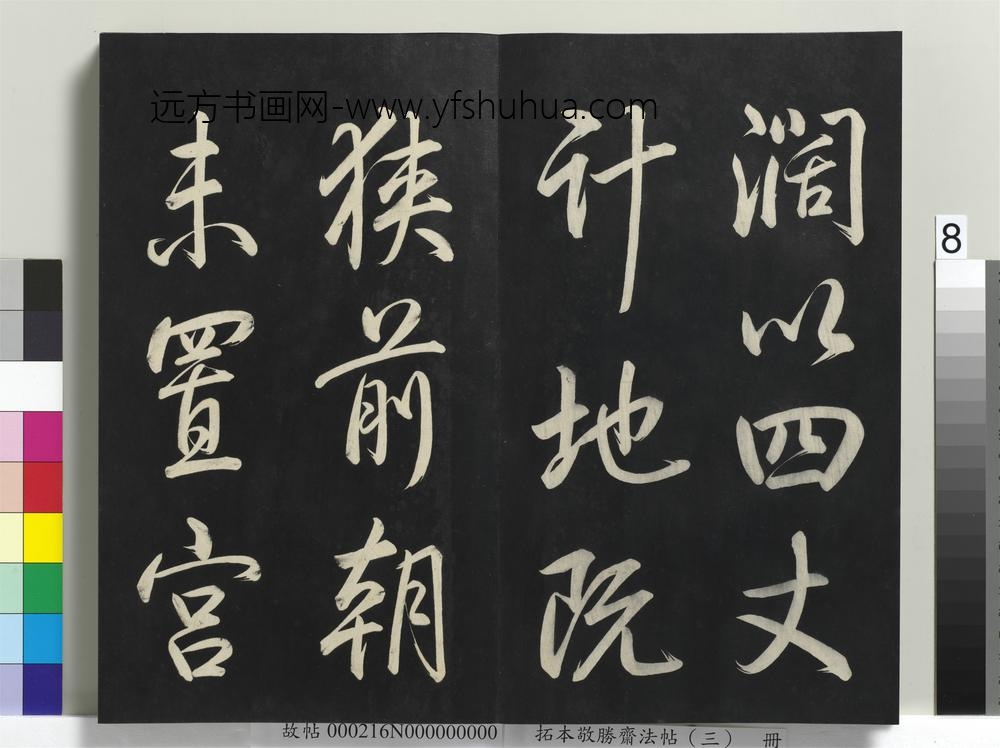 远方书画网-www.yfshuhua.com
阔以四丈
计地既
狭前朝
未置宫
8
故帖 000216N000000000 拓本敬勝齋法帖（三） 冊